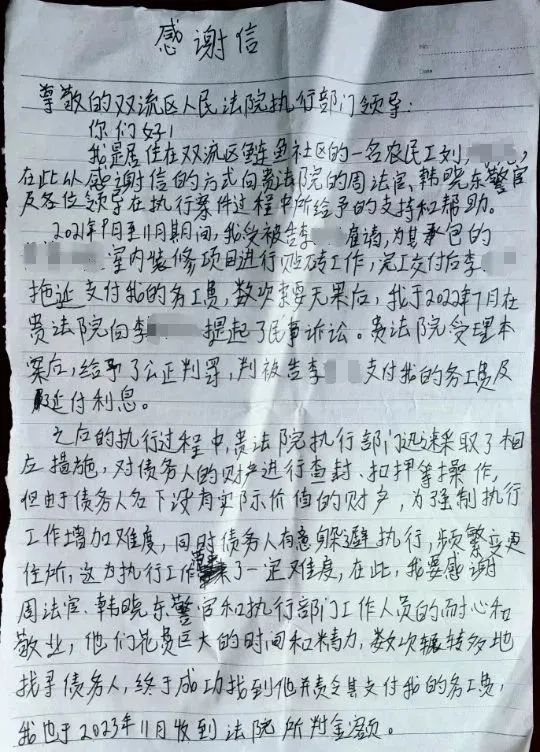 感谢信
尊敬的双流区人民法院执行部门领导：
你们好！
我是居住在双流区鲢鱼社区的一名农民工刘
在此以感谢信的方式向贵法院的周法官、韩晓东警官
及各位领导在执行案件过程中所给予的支持和帮助。
2021年9月至11月期间，我受被告李 雇请，为其承包的
室内装修项目进行贴砖工作，完工交付后李
拖延支付我的务工费，数次索要无果后，我于2022年7月在
贵法院向李 提起了民事诉讼。贵法院受理本
案后，给予了公正判罚，判被告李 支付我的务工费及
延付利息。
之后的执行过程中，贵法院执行部门迅速采取了相
应措施，对债务人的财产进行查封、扣押等操作，
但由于债务人名下没有实际价值的财产，为强制执行
工作增加难度，同时债务人有意躲避执行，频繁变更
住所，这为执行工作 来了一定难度，在此，我要感谢
周法官、韩晓东警官和执行部门工作人员的耐心和
敬业，他们花费巨大的时间和精力，数次辗转多地
找寻债务人，终于成功找到他并责令其支付我的务工费，
我也于2023年11月收到法院所判金额。